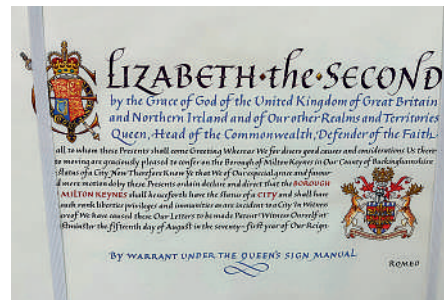 ELIZABETH·the·SECOND
by the Grace of God of the United Kingdom of Great Britain
and Northern Ireland and of Our other Realms and Territories
Queen, Head of the Commonwealth, Defender of the Faith.
all to whom these Presents shall come Greeting Whereas We for divers good causes and considerations Us there
to moving are graciously pleased to confer on the Borough of Milton Keynes in Our County of Buckinghamshire
Status of a City Now Therefore Know Ye that We of Our especial grace and favour
d mere motion do by these Presents ordain declare and direct that the BOROUGH
MILTON KEYNES shall henceforth have the status of a CITY and shall have
such rank liberties privileges and immunities as are incident to a City In Witness
ereof We have caused these Our Letters to be made Patent Witness Ourself at
stminster the fifteenth day of August in the seventy-first year of Our Reign
BY WARRANT UNDER THE QUEEN'S SIGN MANUAL
ROMEO